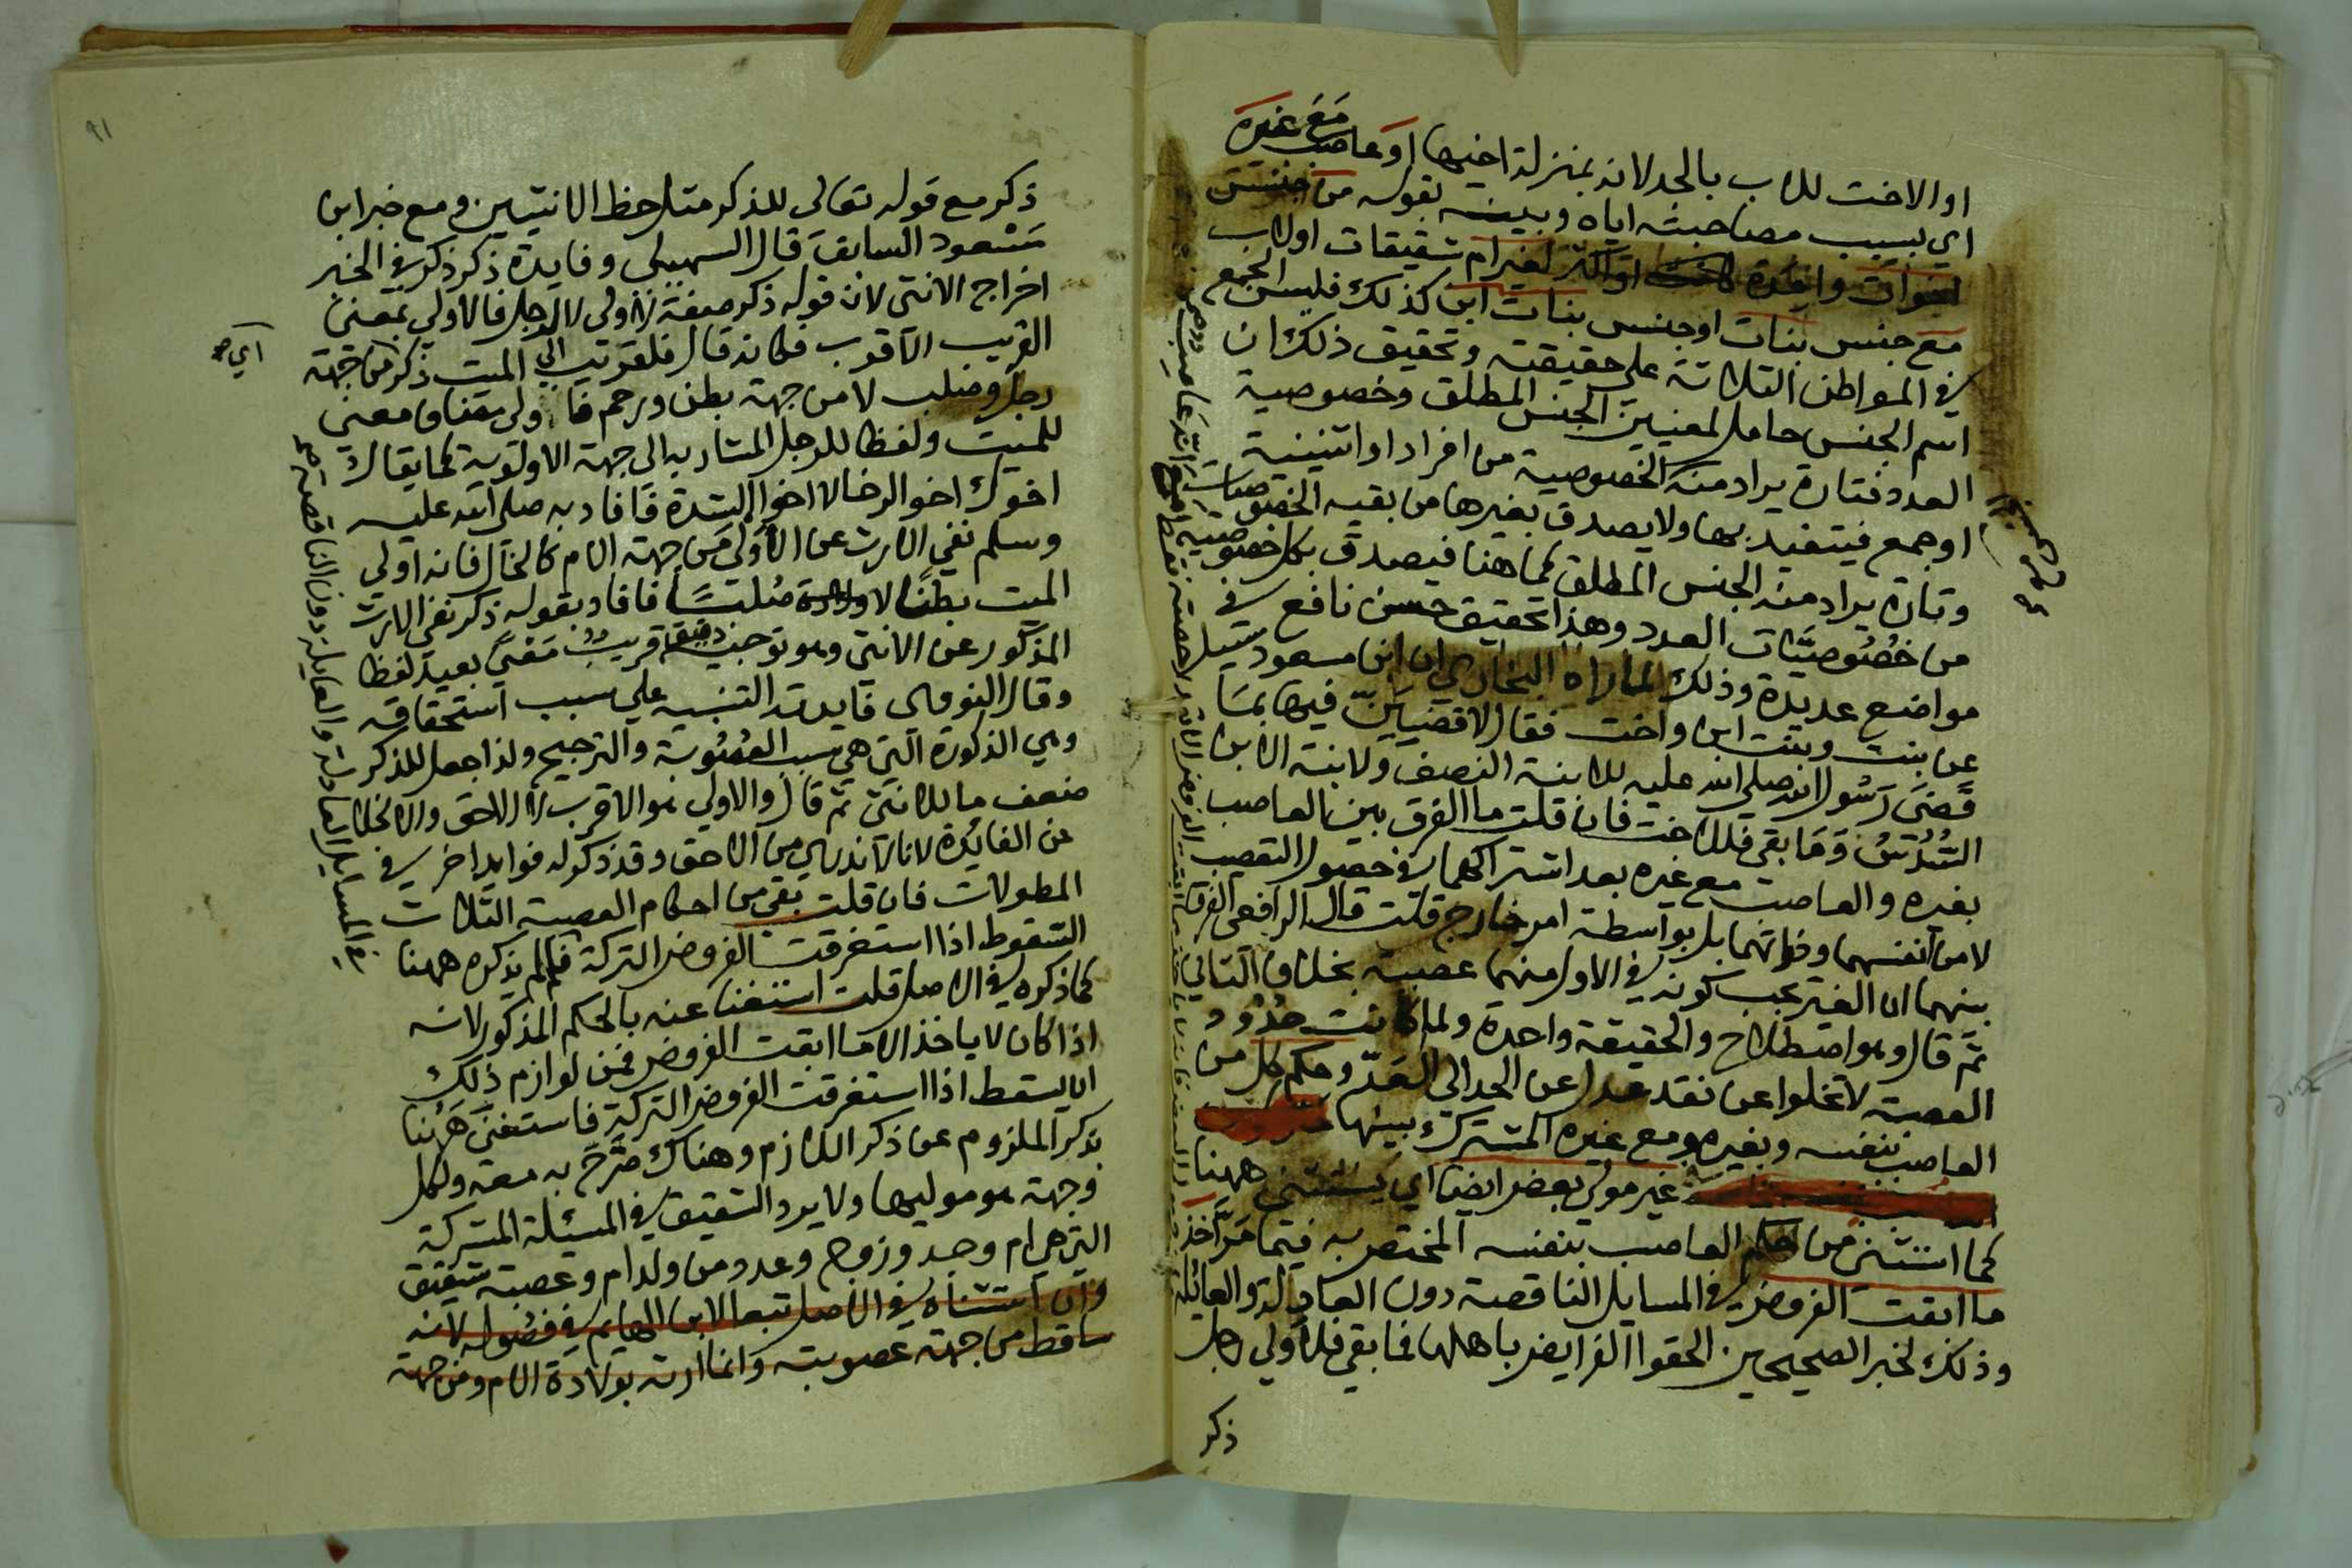 او الاخت للاب بالجد لانه بمنزلة اخيها او عاصب مع غيره
اي بسبب مصاحبته اياه وبينه بقوله من جنس
اخوات واحدة او اكثر لغير ام شقيقات او لاب
مع جنس بنات او جنس بنات ابن كذلك فليس الجمع
في المواطن الثلاثة على حقيقته وتحقيق ذلك ان
اسم الجنس حامل لمعنيين الجنس المطلق وخصوصية
العدد فتارة يراد منه الخصوصية من افراد او اثنينية
او جمع فيتقيد بها ولا يصدق بغيرها من بقيه الخصوصيات
وتارة يراد منه الجنس المطلق كما هنا فيصدق بكل خصوصية
من خصوصيات العدد وهذا تحقيق حسن نافع في
مواضع عديدة وذلك لما رواه البخاري ان ابن مسعود سئل
عن بنت وبنت ابن واخت فقال لاقضين فيها بما
قضى رسول الله صلى الله عليه للابنة النصف ولابنة الابن
السدس وما بقي فللاخت فان قلت ما الفرق بين العاصب
بغيره والعاصب مع غيره بعد اشتراكهما في حصول التعصيب
لا من انفسهما وذاتهما بل بواسطة امر خارج قلت قال الرافعي الفرق
بينهما ان الغير يجب كونه في الاول منهما عصبة بخلاف الثاني
ثم قال وهو اصطلاح والحقيقة واحدة ولما كانت حدود
العصبة لا تخلوا عن نقد عدل عن الحد الى العد وحكم كل من
العاصب بنفسه وبغيره ومع غيره المشترك بينها
غير مولى بعض ايضا اي يستثنى ههنا
كما استثنى من حكم العاصب بنفسه المختص به فيما مر اخذ
ما ابقت الفروض في المسايل الناقصة دون العادلة والعائلة
وذلك لخبر الصحيحين الحقوا الفرايض باهلها فما بقي فلاولى رجل
ذكر
٩١
ذكر مع قوله تعالى للذكر مثل حظ الانثيين ومع خبر ابن
مسعود السابق قال السهيلي وفايدة ذكر ذكر في الخبر
اخراج الانثى لان قوله ذكر صفة لاولى لا لرجل فالاولى بمعنى
القريب الاقرب فكانه قال فلقريب الى الميت ذكر من جهة
رجل وصلب لا من جهة بطن ورحم فاولى مضاف معنى
للميت ولفظا للرجل المشار به الى جهة الاولوية كما يقال
اخوك اخو الرخا لا اخو الشدة فافاد به صلى الله عليه
وسلم نفي الارث عن الاولى من جهة الام كالخال فانه اولى
الميت بطنًا لا صلبًا فافاد بقوله ذكر نفي الارث
المذكور عن الانثى وهو توجيه دقيق قريب معنى بعيد لفظا
وقال النووي فايدته التنبيه على سبب استحقاقه
وهي الذكورة التي هي سبب العصوبة والترجيح ولذا جعل للذكر
ضعف ما للانثى ثم قال والاولى هو الاقرب لا الاحق والا لخلا
عن الفايدة لانا لا ندري من الاحق وقد ذكر له فوايد اخر في
المطولات فان قلت بقي من احكام العصبة الثلاث
السقوط اذا استغرقت الفروض التركة فلم لم يذكره ههنا
كما ذكره في الاصل قلت استغنا عنه بالحكم المذكور لانه
اذا كان لا ياخذ الا ما ابقت الفروض فمن لوازم ذلك
ان يسقط اذا استغرقت الفروض التركة فاستغنى ههنا
بذكر الملزوم عن ذكر اللازم وهناك صرح به معه ولكل
وجهة هو موليها ولا يرد الشقيق في المسئلة المشركة
التي هي ام وجد وزوج وعدد من ولد ام وعصبة شقيق
وان استثناه في الاصل تبعا لابن الهايم في فصوله لانه
ساقط من جهة عصوبته وانما ارثه بولادة الام ومن جهة
اي صح